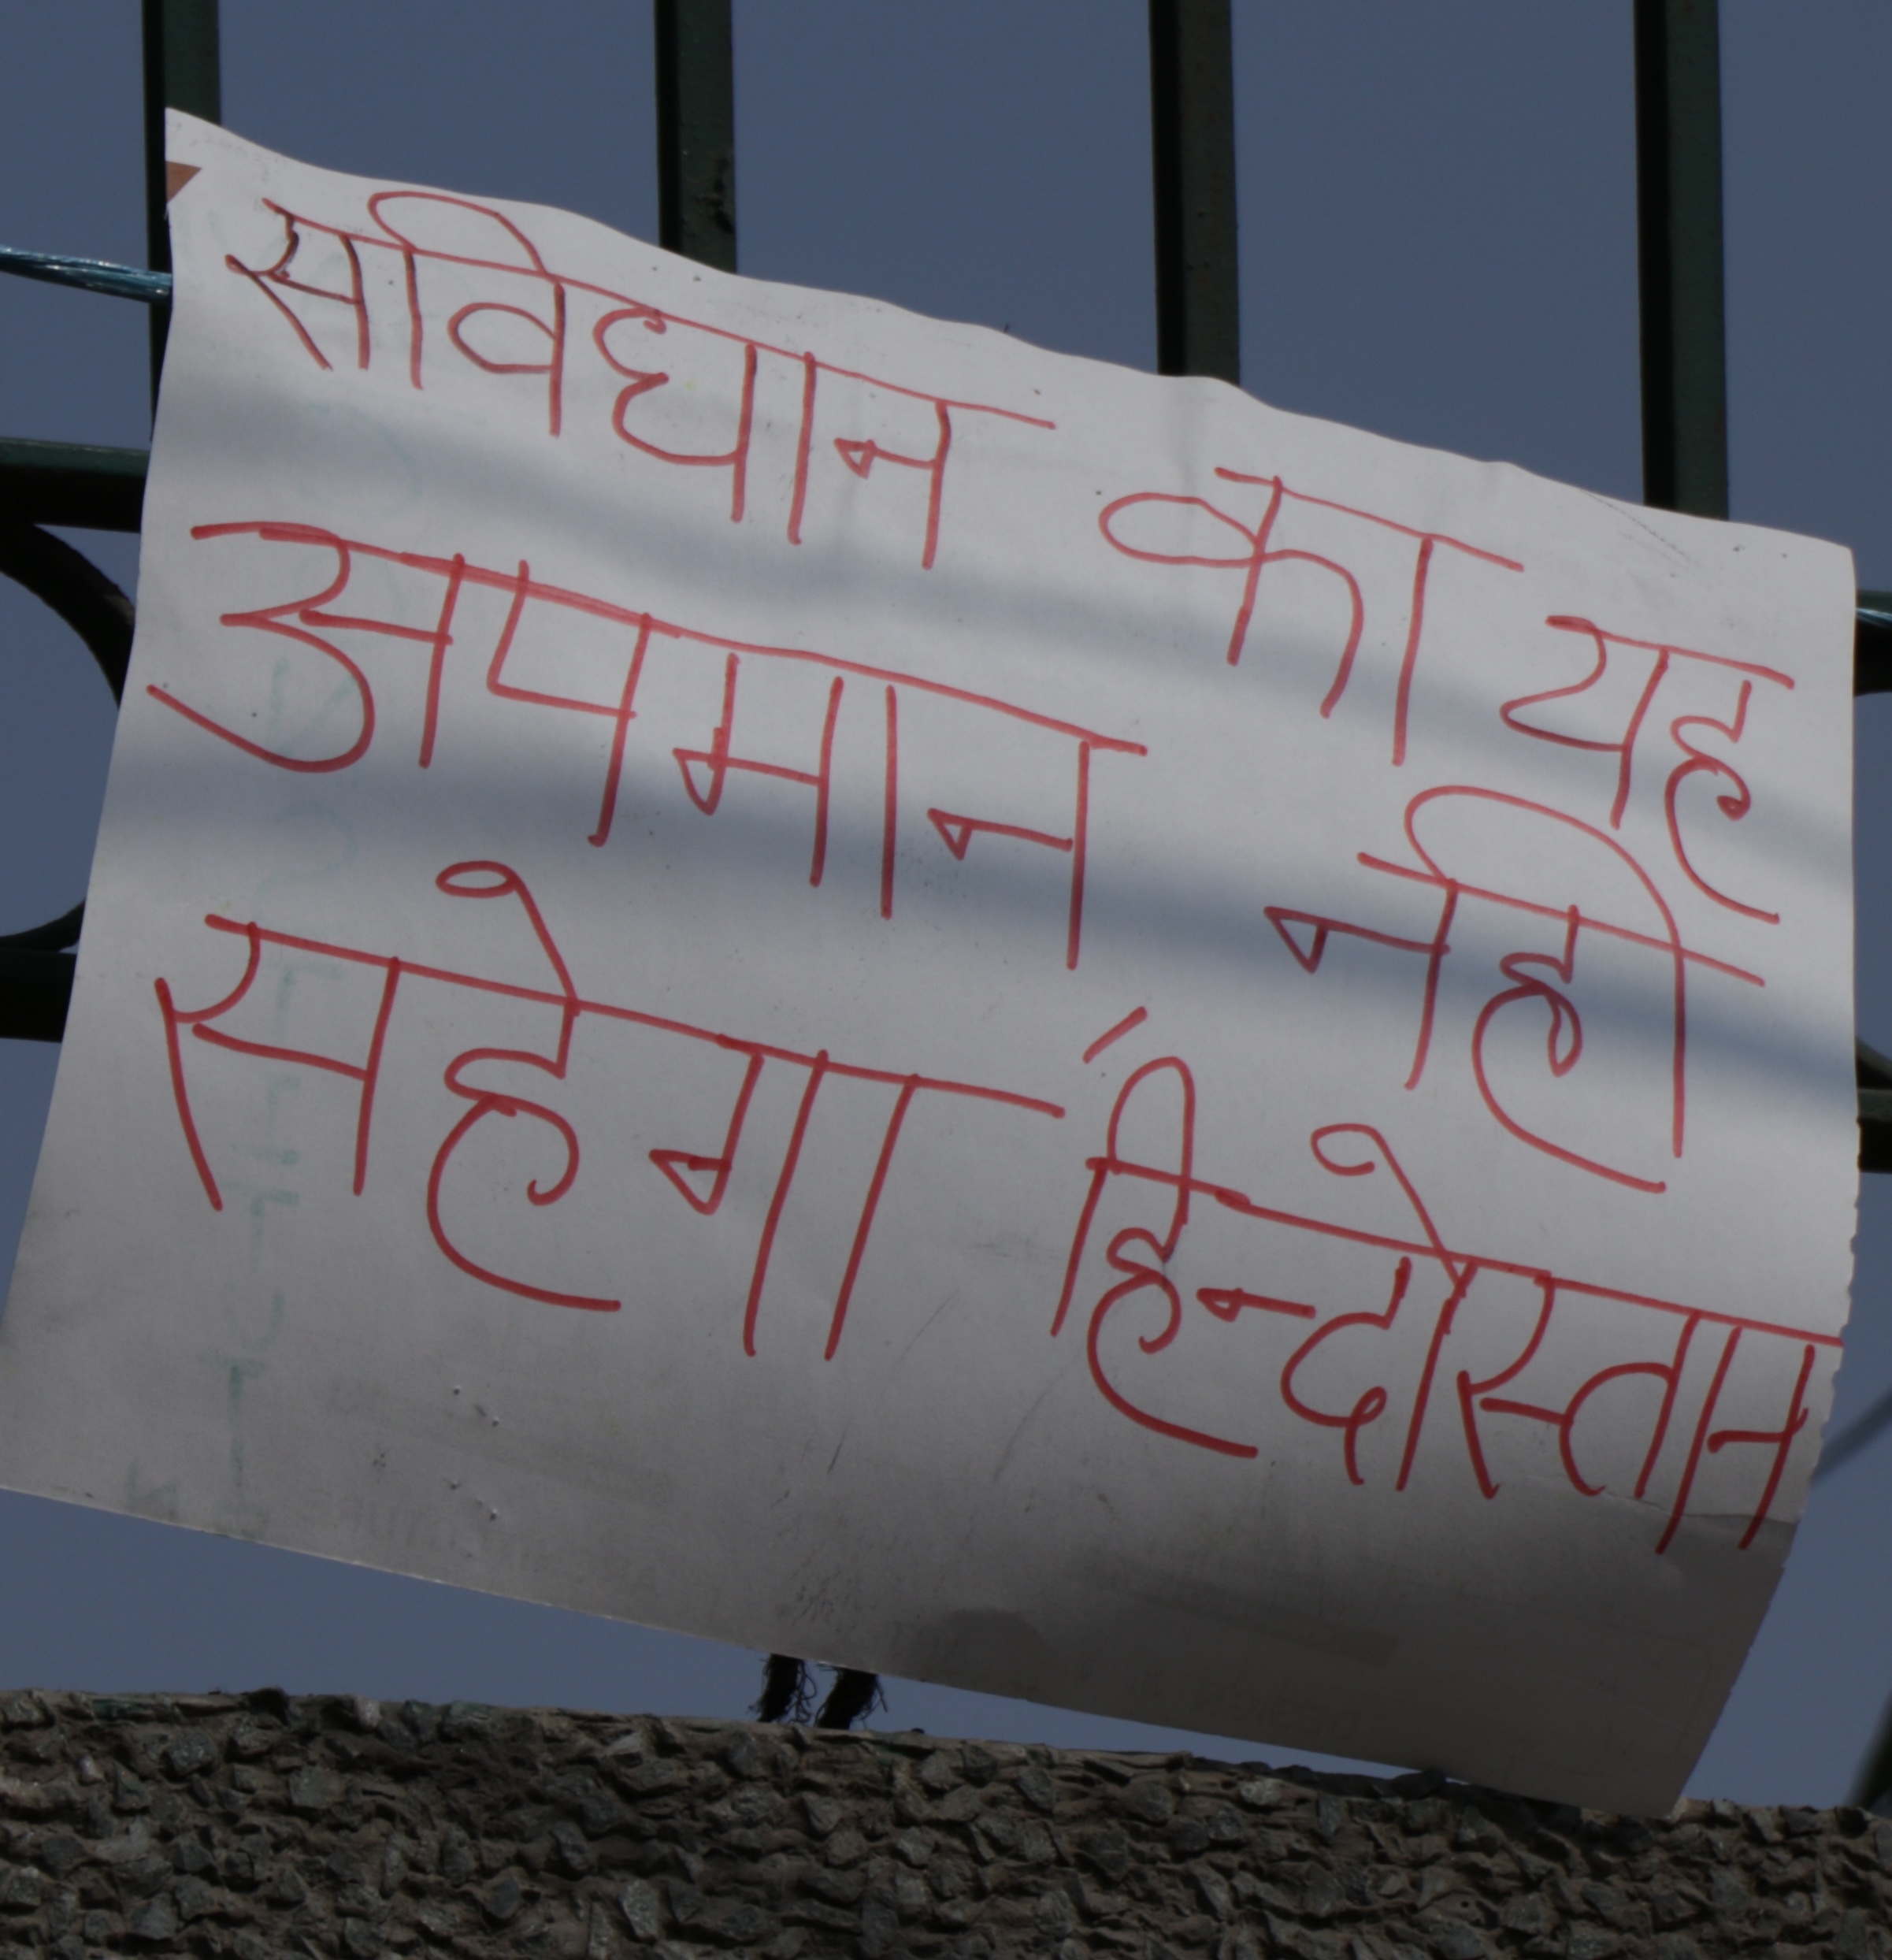 सविधान का यह
अपमान नही
सहेगा हिन्दोस्तान